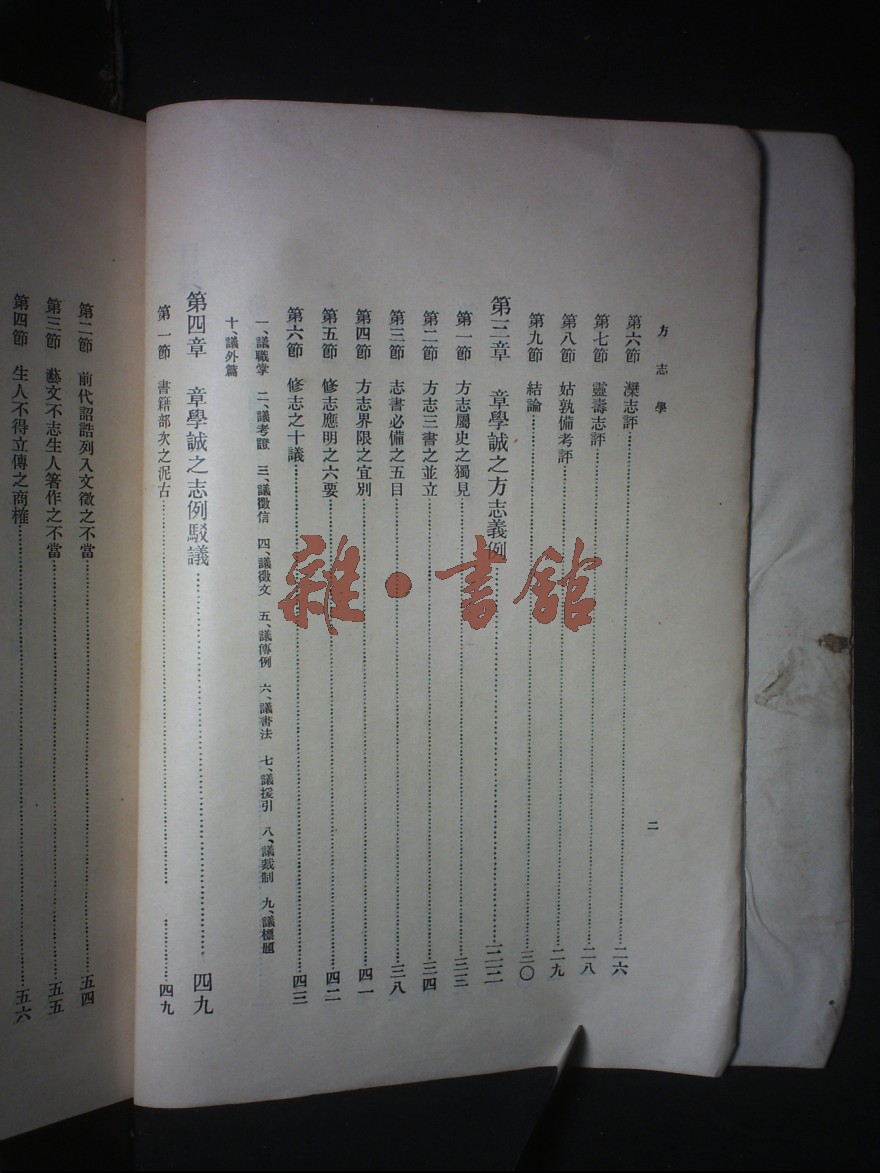 方志學
二
第六節 灤志評 二六
第七節 靈壽志評 二八
第八節 姑孰備考評 二九
第九節 結論 三〇
第三章 章學誠之方志義例 三三
第一節 方志屬史之獨見 三三
第二節 方志三書之並立 三四
第三節 志書必備之五目 三八
第四節 方志界限之宜別 四一
第五節 修志應明之六要 四二
第六節 修志之十議 四三
一、議職掌 二、議考證 三、議徵信 四、議徵文 五、議傳例 六、議書法 七、議援引 八、議裁制 九、議標題
十、議外篇
第四章 章學誠之志例駁議 四九
第一節 書籍部次之泥古 四九
第二節 前代詔誥列入文徵之不當 五四
第三節 藝文不志生人箸作之不當 五五
第四節 生人不得立傳之商榷 五六
雜·書館